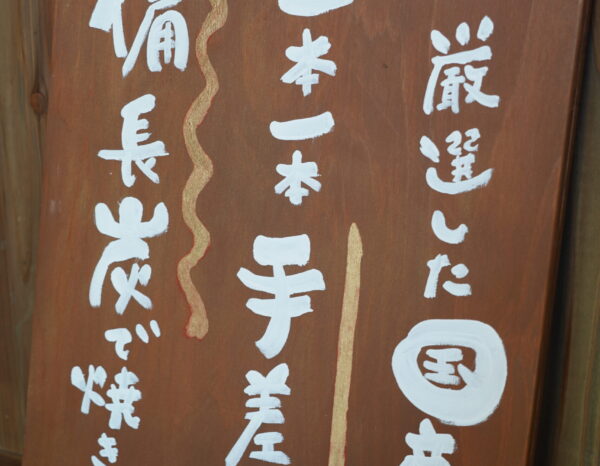 厳選した国産
一本一本手差
備長炭で焼き